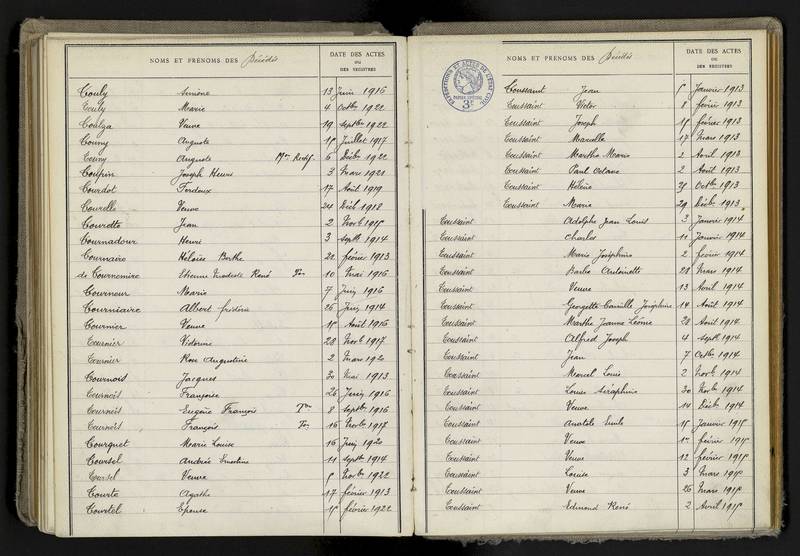 NOMS ET PRÉNOMS DES Décédés
DATE DES ACTES
OU
DES REGISTRES
Touly Siméone 13 Juin 1916
Touly Marie 4 Octbre 1922
Toulza Veuve 19 Septbre 1922
Touny Auguste 15 Juillet 1917
Touny Auguste Mon Rectif. 6 Décbre 1922
Toupin Joseph Henri 3 Mars 1921
Tourdot 17 Août 1919
Tourelle Veuve 24 Déc. 1918
Tourette Jean 2 Novb 1915
Tournadour Henri 3 Septb 1914
Tournaire Héloïse Berthe 22 février 1913
de Tournemire Etienne Modeste René Ton 10 Mai 1916
Tourneur Marie 7 Juin 1916
Tourniaire Albert frédéric 26 Juin 1914
Tournier Veuve 15 Août 1916
Tournier Victorine 28 Novb 1917
Tournier Rose Augustine 2 Mars 1920
Tournois Jacques 30 Mai 1913
Tournois Françoise 26 Juin 1916
Tournois Eugène François Ton 8 Septbre 1916
Tournois François Ton 16 Novb 1917
Tourquet Marie Louise 16 Juin 1920
Toursel Andrée Ernestine 11 Septb 1914
Toursel Veuve 5 Novb 1922
Tourte Agathe 17 février 1913
Tourtel Epouse 15 février 1922
NOMS ET PRÉNOMS DES Décédés
DATE DES ACTES
OU
DES REGISTRES
EXPÉDITIONS ET ACTES DE L'ÉTAT CIVIL
PAPIER SPÉCIAL
3F
Toussaint Jean 5 Janvier 1913
Toussaint Victor 8 février 1913
Toussaint Joseph 15 février 1913
Toussaint Marcelle 17 Mars 1913
Toussaint Marthe Marie 2 Avril 1913
Toussaint Paul Octave 2 Août 1913
Toussaint Hélène 25 Octbre 1913
Toussaint Marie 29 Décb 1913
Toussaint Adolphe Jean Louis 3 Janvier 1914
Toussaint Charles 11 Janvier 1914
Toussaint Marie Joséphine 2 février 1914
Toussaint Barbe Antoinette 28 Mars 1914
Toussaint Veuve 13 Avril 1914
Toussaint Georgette Camille Joséphine 14 Août 1914
Toussaint Marthe Jeanne Léonie 28 Août 1914
Toussaint Alfred Joseph 4 Septb 1914
Toussaint Jean 7 Octbre 1914
Toussaint Marcel Louis 2 Novb 1914
Toussaint Louise Séraphine 30 Novb 1914
Toussaint Veuve 14 Décb 1914
Toussaint Anatole Emile 15 Janvier 1915
Toussaint Veuve 1er février 1915
Toussaint Veuve 12 février 1915
Toussaint Louise 3 Mars 1915
Toussaint Veuve 26 Mars 1915
Toussaint Edmond René 2 Avril 1915